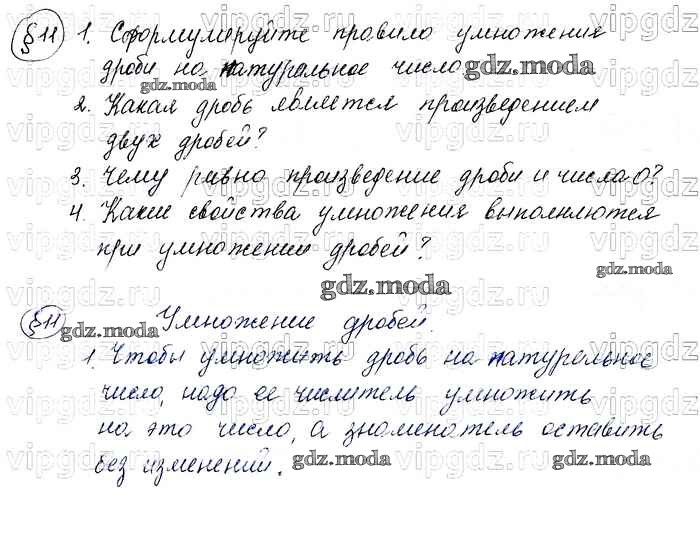 §11 1. Сформулируйте правило умножения
дроби на натуральное число.
2. Какая дробь является произведением
двух дробей?
3. Чему равно произведение дроби и числа 0?
4. Какие свойства умножения выполняются
при умножении дробей?
§11 Умножение дробей.
1. Чтобы умножить дробь на натуральное
число, надо ее числитель умножить
на это число, а знаменатель оставить
без изменений.